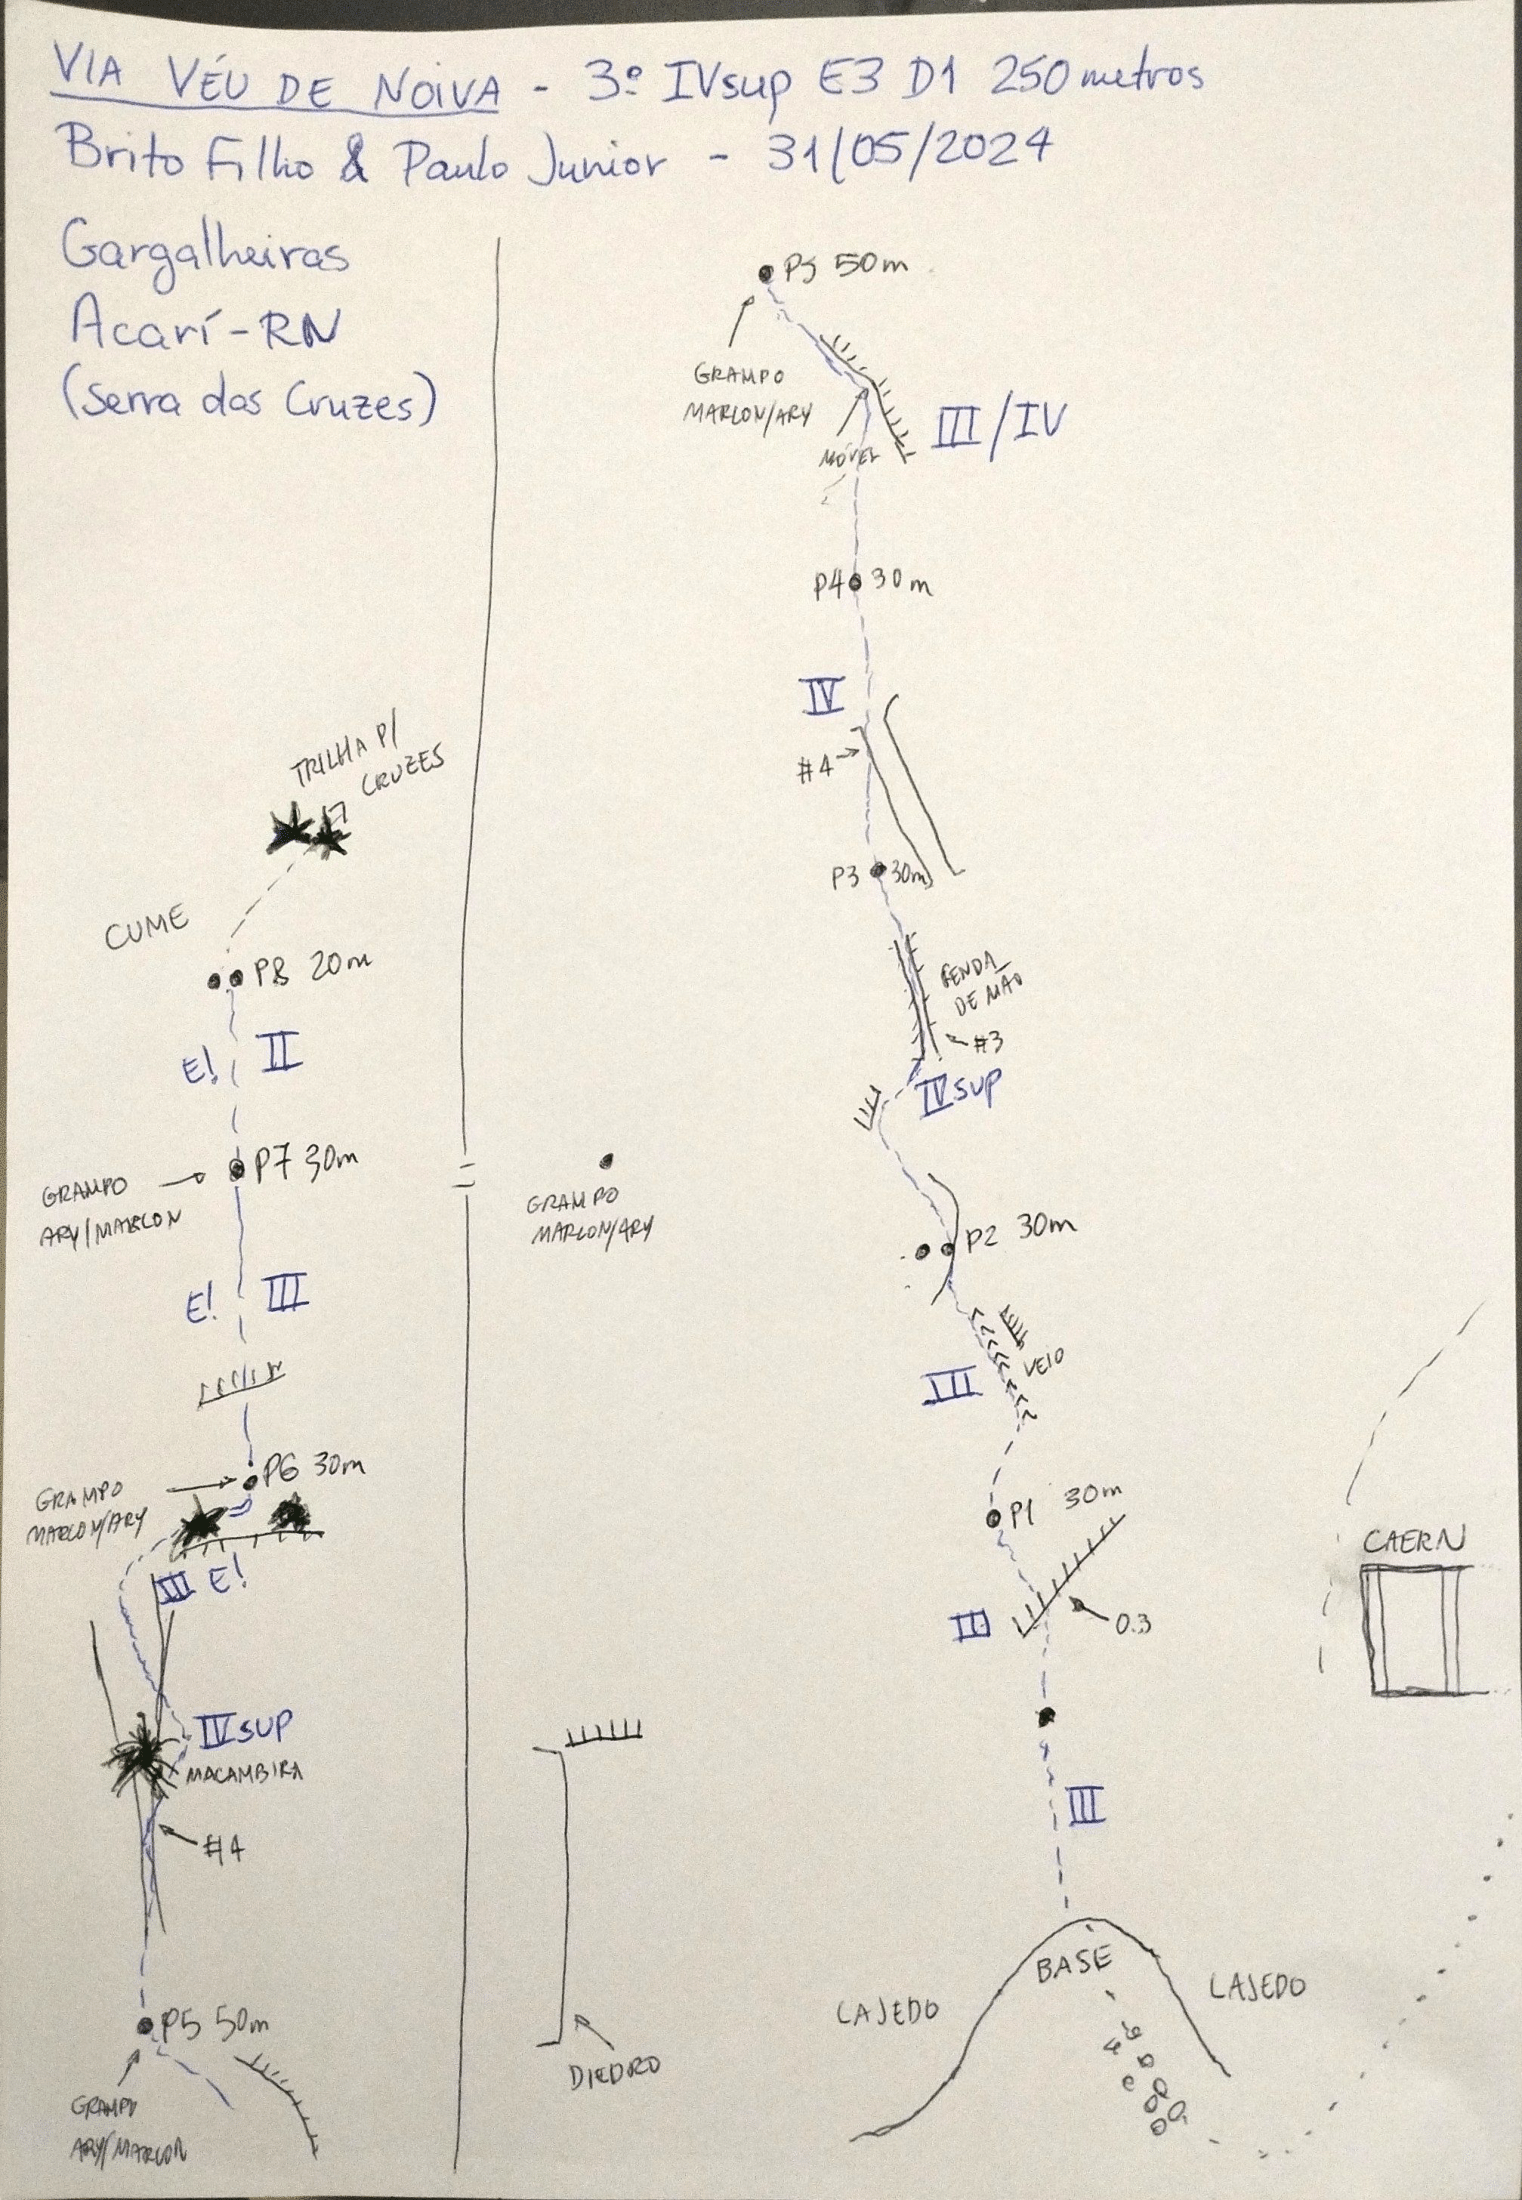 VIA VÉU DE NOIVA - 3º IVsup E3 D1 250 metros
Brito Filho & Paulo Junior - 31/05/2024
Gargalheiras
Acarí-RN
(Serra das Cruzes)
P5 50m
GRAMPO
MARLON/ARY
MÓVEL
III/IV
P4 30m
IV
#4
P3 30m
FENDA
DE MÃO
#3
IVsup
P2 30m
GRAMPO
MARLON/ARY
VEIO
III
P1 30m
II
0.3
III
CAERN
BASE
LAJEDO
LAJEDO
DIEDRO
TRILHA P/
CRUZES
CUME
P8 20m
E! II
P7 30m
GRAMPO
ARY/MARLON
E! III
P6 30m
GRAMPO
MARLON/ARY
III E!
IVSUP
MACAMBIRA
#4
P5 50m
GRAMPO
ARY/MARLON